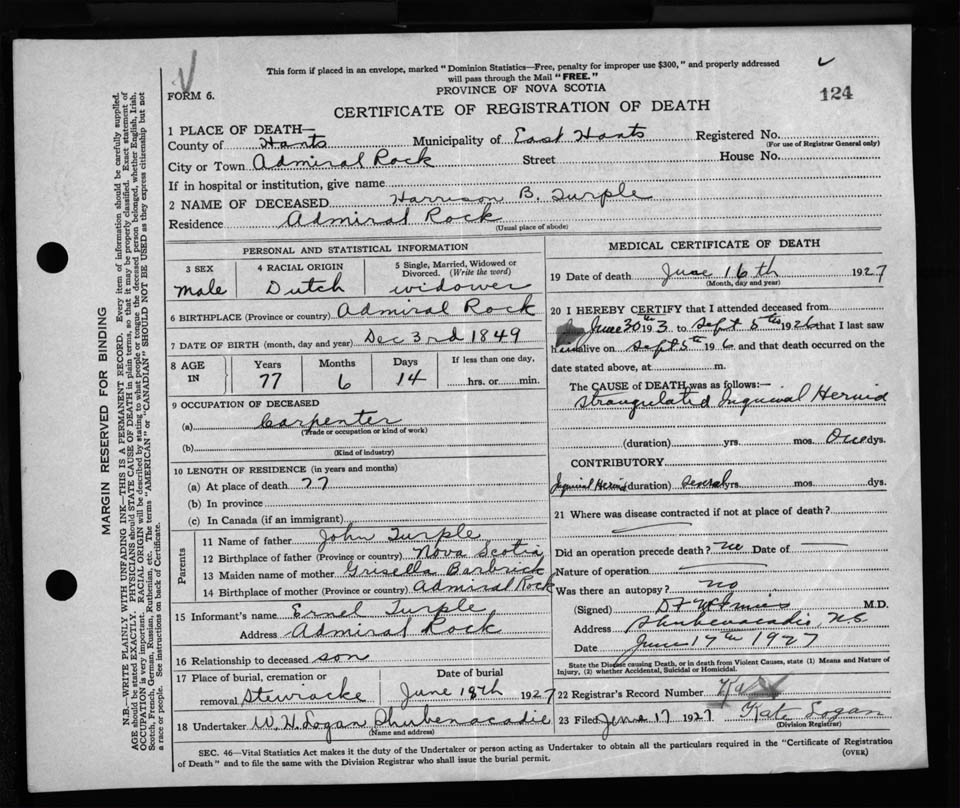 This form if placed in an envelope, marked "Dominion Statistics—Free, penalty for improper use $300," and properly addressed
will pass through the Mail "FREE."
FORM 6.
PROVINCE OF NOVA SCOTIA
124
CERTIFICATE OF REGISTRATION OF DEATH
1 PLACE OF DEATH—
County of Hants Municipality of East Hants Registered No.
(For use of Registrar General only)
City or Town Admiral Rock Street House No.
If in hospital or institution, give name
2 NAME OF DECEASED Harrison B. Turple
Residence Admiral Rock
(Usual place of abode)
PERSONAL AND STATISTICAL INFORMATION
3 SEX 4 RACIAL ORIGIN 5 Single, Married, Widowed or
Divorced. (Write the word)
male Dutch widower
6 BIRTHPLACE (Province or country) Admiral Rock
7 DATE OF BIRTH (month, day and year) Dec 3rd 1849
8 AGE IN Years Months Days If less than one day,
77 6 14 hrs. or min.
9 OCCUPATION OF DECEASED
(a) Carpenter
(Trade or occupation or kind of work)
(b)
(Kind of industry)
10 LENGTH OF RESIDENCE (in years and months)
(a) At place of death 77
(b) In province
(c) In Canada (if an immigrant)
Parents
11 Name of father John Turple
12 Birthplace of father (Province or country) Nova Scotia
13 Maiden name of mother Grisella Barbrick
14 Birthplace of mother (Province or country) Admiral Rock
15 Informant's name Ernel Turple
Address Admiral Rock
16 Relationship to deceased son
17 Place of burial, cremation or Date of burial
removal Stewiacke June 18th 1927
18 Undertaker W. H. Logan Shubenacadie
(Name and address)
MEDICAL CERTIFICATE OF DEATH
19 Date of death June 16th 1927
(Month, day and year)
20 I HEREBY CERTIFY that I attended deceased from
June 30th 193 to Sept 5th 1926 that I last saw
h alive on Sept 5th 19 6 and that death occurred on the
date stated above, at m.
The CAUSE of DEATH was as follows:—
Strangulated Inguinal Hernia
(duration) yrs. mos. One dys.
CONTRIBUTORY
Inguinal Hernia (duration) several yrs. mos. dys.
21 Where was disease contracted if not at place of death?
Did an operation precede death? no Date of —
Nature of operation —
Was there an autopsy? no
(Signed) M.D.
Address Shubenacadie, N.S.
Date June 17th 1927
State the Disease causing Death, or in death from Violent Causes, state (1) Means and Nature of
Injury, (2) whether Accidental, Suicidal or Homicidal.
22 Registrar's Record Number
23 Filed June 17 1927 Kate Logan
(Division Registrar)
SEC. 46—Vital Statistics Act makes it the duty of the Undertaker or person acting as Undertaker to obtain all the particulars required in the "Certificate of Registration
of Death" and to file the same with the Division Registrar who shall issue the burial permit.
(OVER)
MARGIN RESERVED FOR BINDING
N.B.—WRITE PLAINLY WITH UNFADING INK—THIS IS A PERMANENT RECORD. Every item of information should be carefully supplied.
AGE should be stated EXACTLY. PHYSICIANS should STATE CAUSE OF DEATH in plain terms, so that it may be properly classified. Exact statement of
OCCUPATION is very important. RACIAL ORIGIN will be described by stating to what people or tongue the deceased person belonged, whether English, Irish,
Scotch, French, German, Russian, Ruthenian, etc. The terms "AMERICAN" or "CANADIAN" SHOULD NOT BE USED as they express citizenship but not
a race or people. See instructions on back of Certificate.